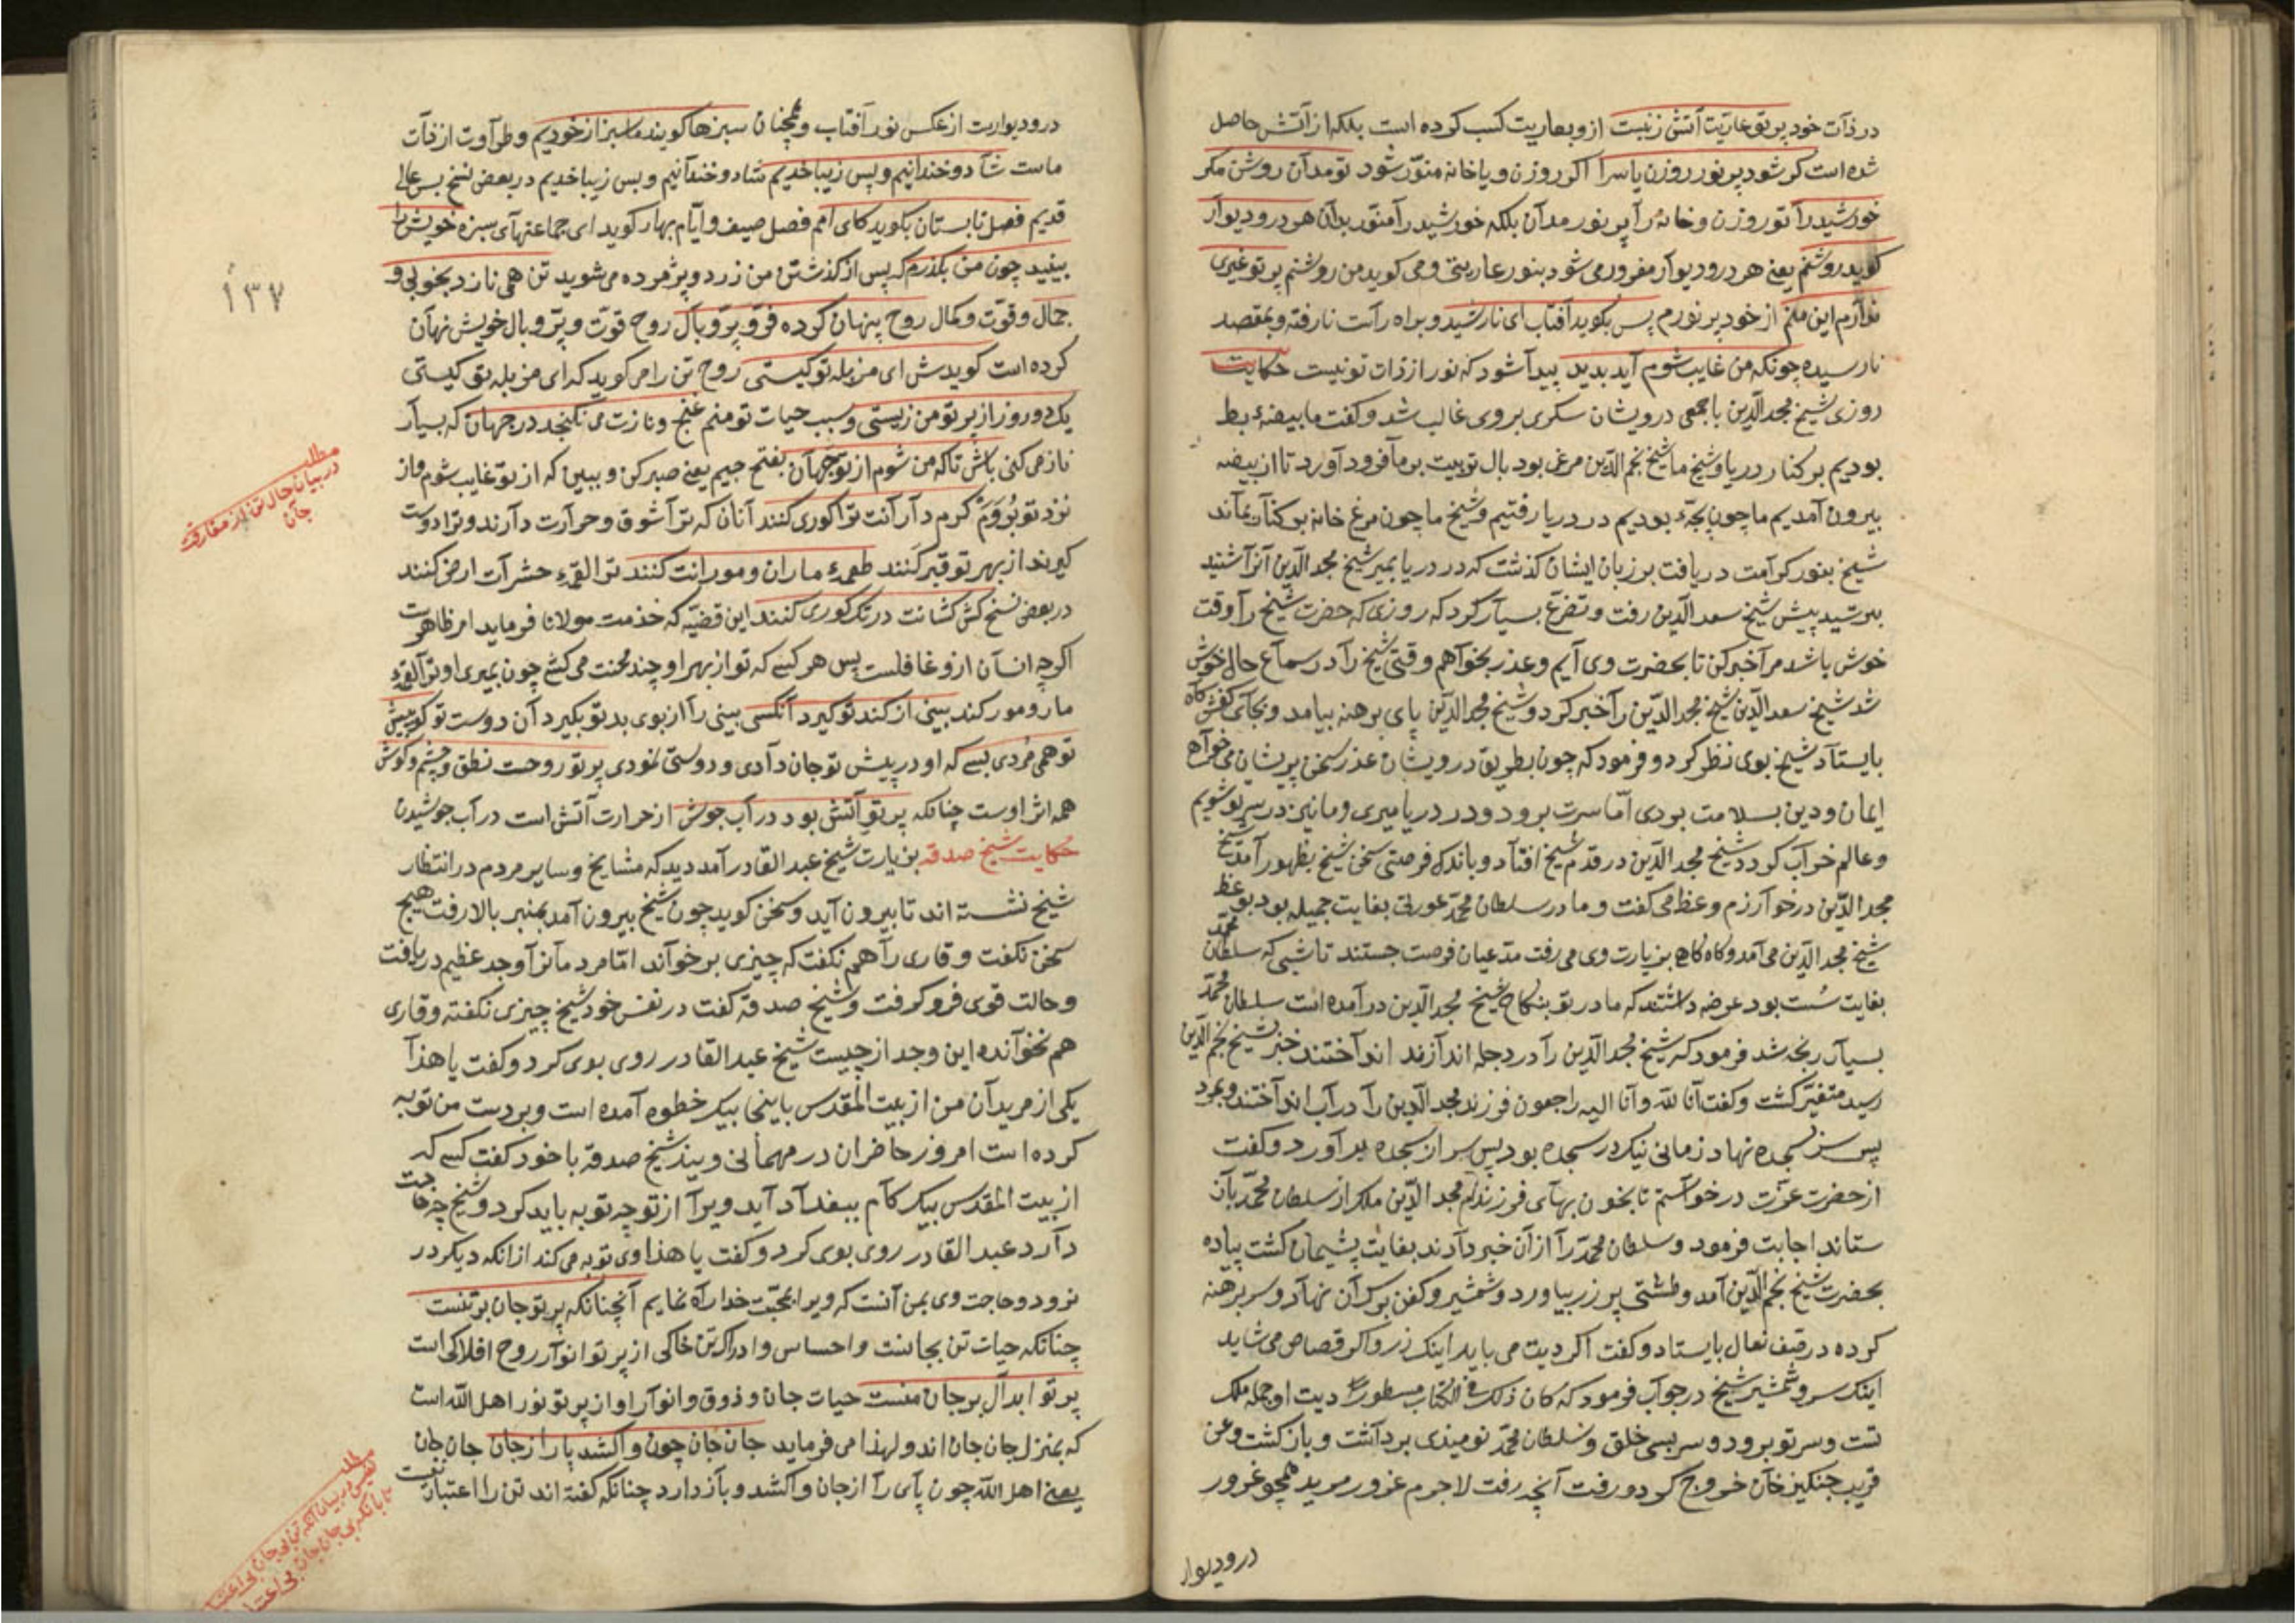 در ذات خود پرتو عاریّت آتش زنیست ازو بعاریت کسب کرده است بلکه از آتش حاصل
شده است کر شود پر نور روزن یا سرا اکر روزن و یا خانه منوّر شود تو مدان روشن مکر
خورشید را تو روزن و خانهٔ را پر نور مدان بلکه خورشید را منوّر بدان هر در و دیوار
کوید روشنم یعنی هر در و دیوار مغرور می شود بنور عاریتی و می کوید من روشنم پرتو غیری
ندارم این منم از خود پر نورم پس بکوید آفتاب ای نارشید و براه راست نارفته و بمقصد
نارسیده چونکه من غایب شوم آید بدید پیدا شود که نور از ذات تو نیست حکایت
روزی شیخ مجد الدّین با جمعی درویشان سکری بر وی غالب شد و کفت ما بیضهٔ بط
بودیم بر کنار دریا و شیخ ما شیخ نجم الدّین مرغی بود بال تربیت بر ما فرود آورد تا از بیضه
بیرون آمدیم ما چون بچهٔ بط بودیم در دریا رفتیم و شیخ ما چون مرغ خانه بر کنار بماند
شیخ بنور کرامت دریافت بر زبان ایشان کذشت که در دریا بمیر شیخ مجد الدّین آنرا شنید
بترسید پیش شیخ سعد الدّین رفت و تضرّع بسیار کرد که روزی که حضرت شیخ را وقت
خوش باشد مرا خبر کن تا بحضرت وی آیم و عذر بخواهم وقتی شیخ را در سماع حال خوش
شد شیخ سعد الدّین شیخ مجد الدّین را خبر کرد و شیخ مجد الدّین پای برهنه بیامد و بجای کفش کاه
بایستاد شیخ بوی نظر کرد و فرمود که چون بطریق درویشان عذر سخن پریشان می خواهی
ایمان و دین بسلامت بردی امّا سرت برود و در دریا میری و ما نیز در سر تو شویم
و عالم خراب کردد شیخ مجد الدّین در قدم شیخ افتاد و باندک فرصتی سخن شیخ بظهور آمد شیخ
مجد الدّین در خوارزم وعظ می کفت و مادر سلطان محمّد عورتی بغایت جمیله بود بوعظ
شیخ مجد الدّین می آمد و کاه کاه بزیارت وی می رفت مدّعیان فرصت جستند تا شبی که سلطان محمّد
بغایت مست بود عرضه داشتند که مادر تو بنکاح شیخ مجد الدّین در آمده است سلطان محمّد
بسیار رنجه شد فرمود که شیخ مجد الدّین را در دجله اندازند انداختند خبر بشیخ نجم الدّین
رسید متغیّر کشت و کفت انّا لله و انّا الیه راجعون فرزند مجد الدّین را در آب انداختند و بمرد
پس سر بسجده نهاد زمانی نیک در سجده بود پس سر از سجده بر آورد و کفت
از حضرت عزّت درخواستم تا بخون بهای فرزندم مجد الدّین ملک از سلطان محمّد باز
ستاند اجابت فرمود و سلطان محمّد را از آن خبر دادند بغایت پشیمان کشت پیاده
بحضرت شیخ نجم الدّین آمد و طشتی پر زر بیاورد و شمشیر و کفن بر سر آن نهاد و سر برهنه
کرده در صف نعال بایستاد و کفت اکر دیت می باید اینک زر و اکر قصاص می شاید
اینک سر و شمشیر شیخ در جواب فرمود که کان ذلک فی الکتاب مسطورا دیت او جمله ملک
تست و سر تو برود و سر بسی خلق و سلطان محمّد نومیدی برداشت و باز کشت و عن
قریب جنکیز خان خروج کرد و رفت آنچه رفت لاجرم غرور مرید همچو غرور
در و دیوار
در و دیوارست از عکس نور آفتاب و همچنان سبزها کویند ما سبز از خودیم و طراوت از ذات
ماست شاد و خندانیم و بس زیبا خدیم شاد و خندانیم و بس زیبا خدیم در بعض نسخ بس عالی
قدیم فصل تابستان بکوید کای امم فصل صیف و ایّام بهار کوید ای جماعتهای سبزه خویش را
ببینید چون من بکذرم که پس از کذشتن من زرد و پژمرده می شوید تن همی نازد بخوبی و
جمال و قوّت و کمال روح پنهان کرده فرّ و پرّ و بال روح قوّت و پرّ و بال خویش نهان
کرده است کویدش ای مزبله تو کیستی روح تن را می کوید که ای مزبله تو کیستی
یک دو روز از پرتو من زیستی و سبب حیات تو منم غنج و نازت می نکنجد در جهان که بسیار
ناز می کنی باش تا که من شوم از تو جَهان بفتح جیم یعنی صبر کن و ببین که از تو غایب شوم و از
نزد تو بروم کرم دارانت ترا کوری کنند آنان که ترا شوق و حرارت دارند و ترا دوست
کیرند از بهر تو قبر کنند طعمهٔ ماران و مورانت کنند ترا لقمهٔ حشرات ارض کنند
در بعض نسخ کش کشانت در تک کوری کنند این قضیّه که خدمت مولانا فرماید امر ظاهرست
اکرچه انسان ازو غافلست پس هر کسی که تو از بهر او چند محنت می کشی چون بمیری او ترا لقمهٔ
مار و مور کند بینی از کند تو کیرد آنکسی بینی را از بوی بد تو بکیرد آن دوست تو کو به پیش
تو همی مُردی بسی که او در پیش تو جان دادی و دوستی نمودی پرتو روحست نطق و چشم و کوش
همه اثر اوست چنانکه پرتو آتش بود در آب جوش از حرارت آتش است در آب جوشیدن
حکایت شیخ صدقه بزیارت شیخ عبد القادر آمد دید که مشایخ و سایر مردم در انتظار
شیخ نشسته اند تا بیرون آید و سخن کوید چون شیخ بیرون آمد بمنبر بالا رفت هیچ
سخن نکفت و قاری را هم نکفت که چیزی بر خواند امّا مردمانرا وجد عظیم دریافت
و حالت قوی فرو کرفت و شیخ صدقه کفت در نفس خود شیخ چیزی نکفته و قاری
هم نخوانده این وجد از چیست شیخ عبد القادر روی بوی کرد و کفت یا هذا
یکی از مریدان من از بیت المقدس باینجا بیک خطوه آمده است و بر دست من توبه
کرده است امروز حاضران در مهمانی ویند شیخ صدقه با خود کفت کسی که
از بیت المقدس بیک کام ببغداد آید ویرا از تو چه توبه باید کرد و شیخ چه حاجت
دارد عبد القادر روی بوی کرد و کفت یا هذا وی توبه می کند از انکه دیکر در
نرود و حاجت وی بمن آنست که ویرا بمحبّت خدا راه نمایم آنچنانکه پرتو جان بر تنست
چنانکه حیات تن بجانست و احساس و ادراک تن خاکی از پرتو انوار روح افلاکی است
پرتو ابدال بر جان منست حیات جان و ذوق و انوار او از پرتو نور اهل الله است
که بمنزل جان جان اند و لهذا می فرماید جان جان چون واکشد پا را ز جان جان جان
یعنی اهل الله چون پای را از جان واکشد و باز دارد چنانکه کفته اند تن را اعتبار نیست
۱۳۷
مطلب
در بیان حال تن از مفارقت
جان
مطلب